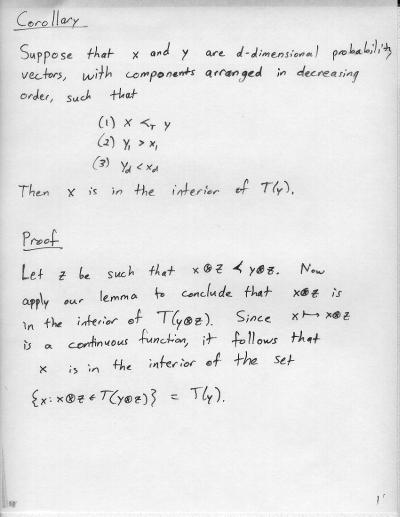 Corollary
Suppose that x and y are d-dimensional probability
vectors, with components arranged in decreasing
order, such that
(1) x ≺_T y
(2) y₁ > x₁
(3) y_d < x_d
Then x is in the interior of T(y).
Proof
Let z be such that x⊗z ≺ y⊗z. Now
apply our lemma to conclude that x⊗z is
in the interior of T(y⊗z). Since x ↦ x⊗z
is a continuous function, it follows that
x is in the interior of the set
{x: x⊗z ∈ T(y⊗z)} = T(y).